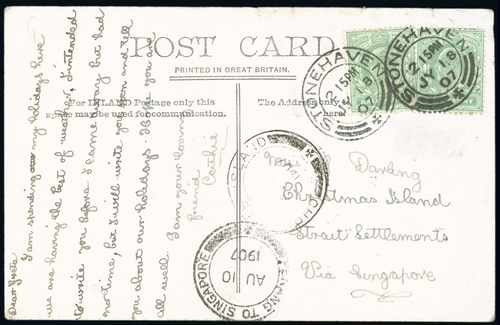 POST CARD
PRINTED IN GREAT BRITAIN.
For INLAND Postage only this
may be used for communication.
The Address only
here
Dear Greta
I am spending my holidays here
we are having the best of weather, I intended
to write you before I came away but had
no time, but I will write you soon and tell
you about our holidays. Hope you are
all well. I am your loving
friend
STONEHAVEN
2 15PM
JY 18
07
STONEHAVEN
2 15PM
JY 18
07
ISLAND
TO SINGAPORE
AU 10
1907
Darling
Christmas Island
Strait Settlements
Via Singapore